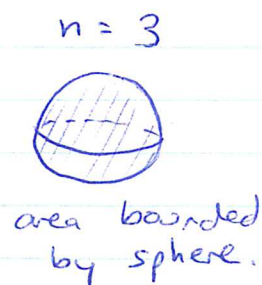 n = 3
area bounded
by sphere.